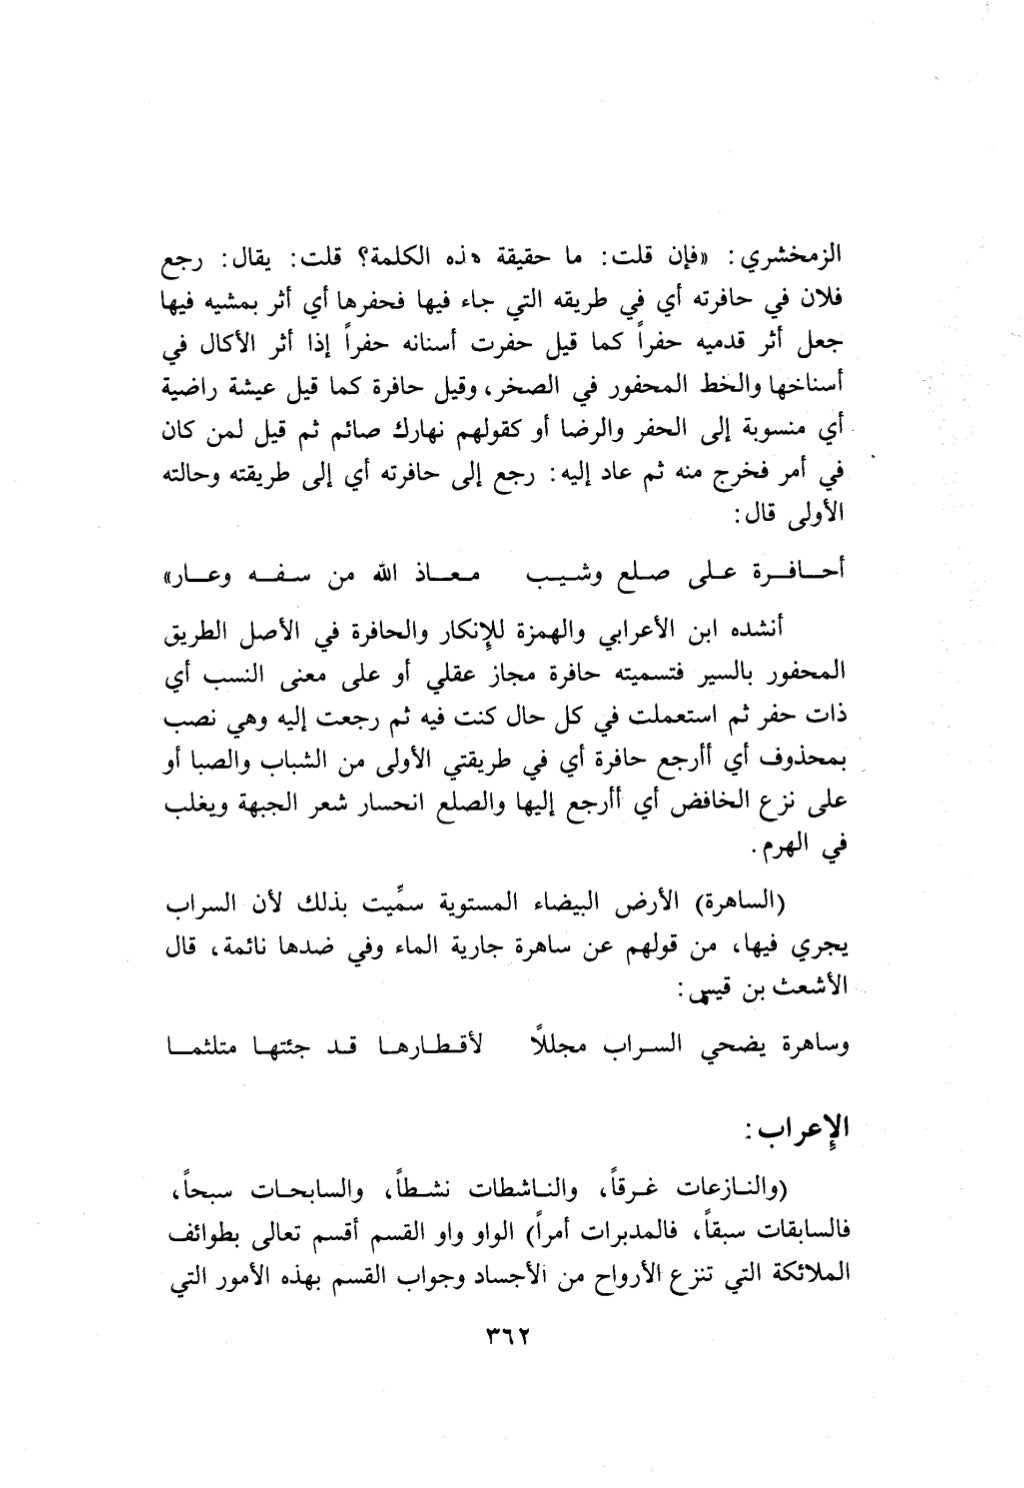 الزمخشري: «فإن قلت: ما حقيقة هذه الكلمة؟ قلت: يقال: رجع
فلان في حافرته أي في طريقه التي جاء فيها فحفرها أي أثر بمشيه فيها
جعل أثر قدميه حفراً كما قيل حفرت أسنانه حفراً إذا أثر الأكال في
أسناخها والخط المحفور في الصخر، وقيل حافرة كما قيل عيشة راضية
أي منسوبة إلى الحفر والرضا أو كقولهم نهارك صائم ثم قيل لمن كان
في أمر فخرج منه ثم عاد إليه: رجع إلى حافرته أي إلى طريقته وحالته
الأولى قال:
أحافرة على صلع وشيب معاذ الله من سفه وعار»
أنشده ابن الأعرابي والهمزة للإنكار والحافرة في الأصل الطريق
المحفور بالسير فتسميته حافرة مجاز عقلي أو على معنى النسب أي
ذات حفر ثم استعملت في كل حال كنت فيه ثم رجعت إليه وهي نصب
بمحذوف أي أأرجع حافرة أي في طريقتي الأولى من الشباب والصبا أو
على نزع الخافض أي أأرجع إليها والصلع انحسار شعر الجبهة ويغلب
في الهرم.
(الساهرة) الأرض البيضاء المستوية سمِّيت بذلك لأن السراب
يجري فيها، من قولهم عن ساهرة جارية الماء وفي ضدها نائمة، قال
الأشعث بن قيس:
وساهرة يضحي السراب مجللًا لأقطارها قد جئتها متلثما
الإعراب:
(والنازعات غرقاً، والناشطات نشطاً، والسابحات سبحاً،
فالسابقات سبقاً، فالمدبرات أمراً) الواو واو القسم أقسم تعالى بطوائف
الملائكة التي تنزع الأرواح من الأجساد وجواب القسم بهذه الأمور التي
٣٦٢